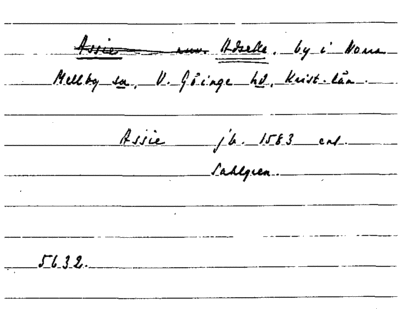 Assie nuv. Adseke, by i Norra
Mellby sn, V. Göinge hd, Krist. län.
Assie jb. 1583 enl.
Sahlgren.
5632.